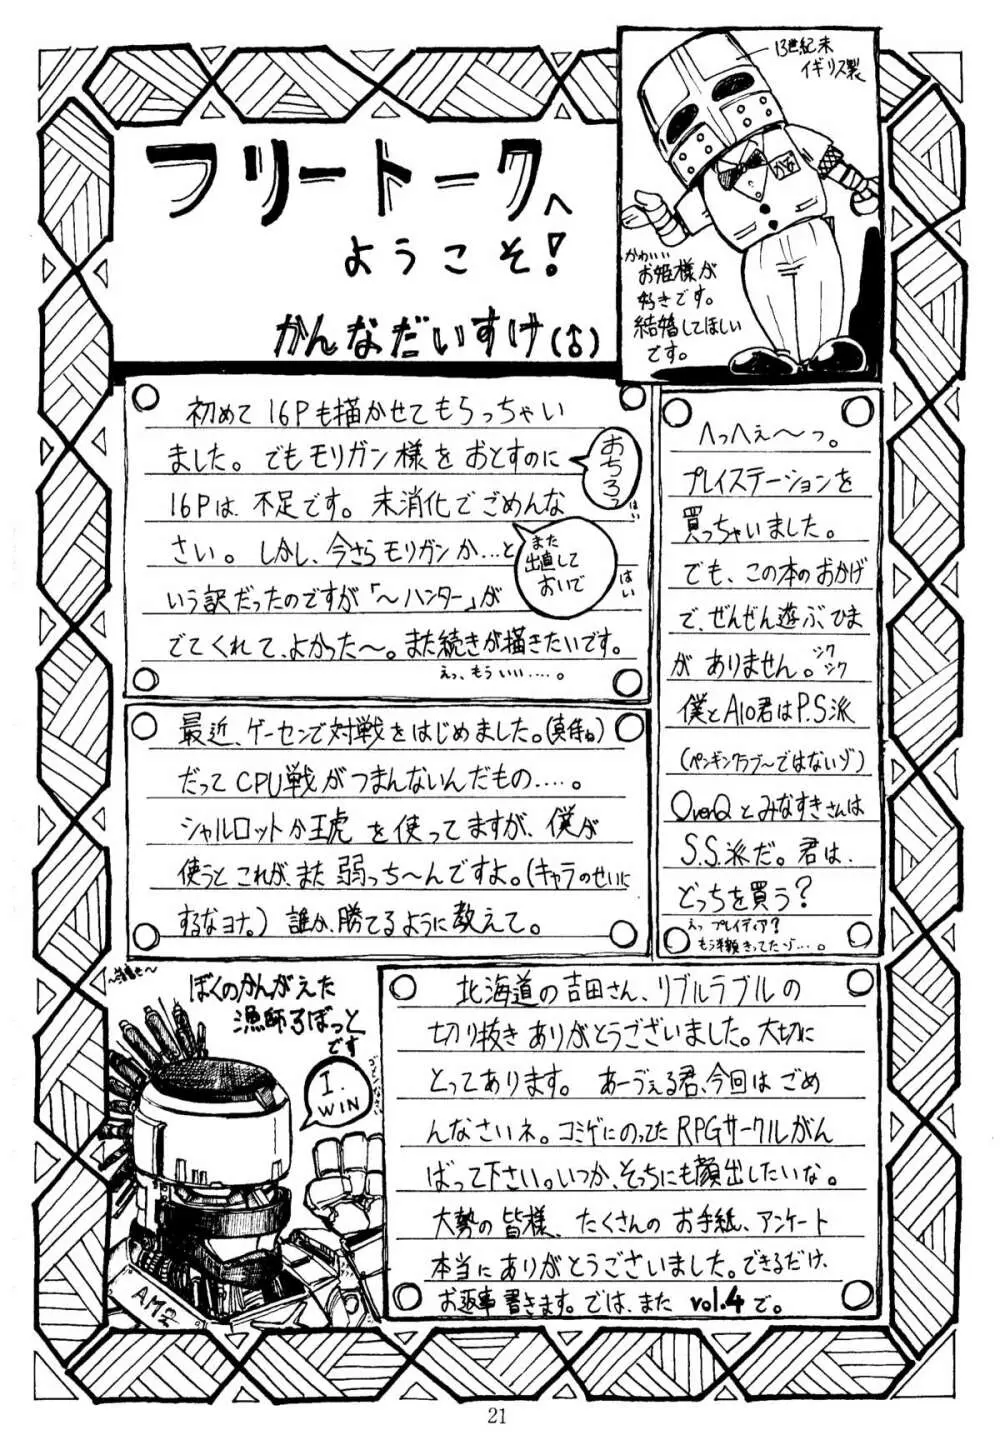 フリートークへ
ようこそ!
かんなだいすけ(♂)
13世紀末
イギリス製
かわいい
お姫様が
好きです。
結婚してほしい
です。
初めて16Pも描かせてもらっちゃい
ました。でもモリガン様をおとすのに
16Pは不足です。未消化でごめんな
さい。しかし、今さらモリガンか…と
いう訳だったのですが「〜ハンター」が
でてくれて、よかった〜。また続きが描きたいです。
えっ、もういい……。
おちろ
はい
また
出直して
おいで
はい
へっへぇ〜っ。
プレイステーションを
買っちゃいました。
でも、この本のおかげ
で、ぜんぜん遊ぶ、ひま
がありません。シクシク
僕とAlo君はP.S派
(ペンギンクラブ〜ではないゾ)
OverQとみなすきさんは
S.S.派だ。君は、
どっちを買う?
えっ プレイディア?
もう半額きってたゾ…。
最近、ゲーセンで対戦をはじめました。
だってCPU戦がつまんないんだもの……。
シャルロットか王虎を使ってますが、僕が
使うとこれが、また弱っち〜んですよ。(キャラのせいに
するなヨナ。)誰か、勝てるように教えて。
ぼくのかんがえた
漁師ろぼっと
です
I.
WIN
AM2
北海道の吉田さん、リブルラブルの
切り抜きありがとうございました。大切に
とってあります。 あーヴぇる君、今回はごめ
んなさいネ。コミゲにのってたRPGサークルがん
ばって下さい。いつか、そっちにも顔出したいな。
大勢の皆様、たくさんのお手紙、アンケート
本当にありがとうございました。できるだけ、
お返事書きます。では、また vol.4で。
21